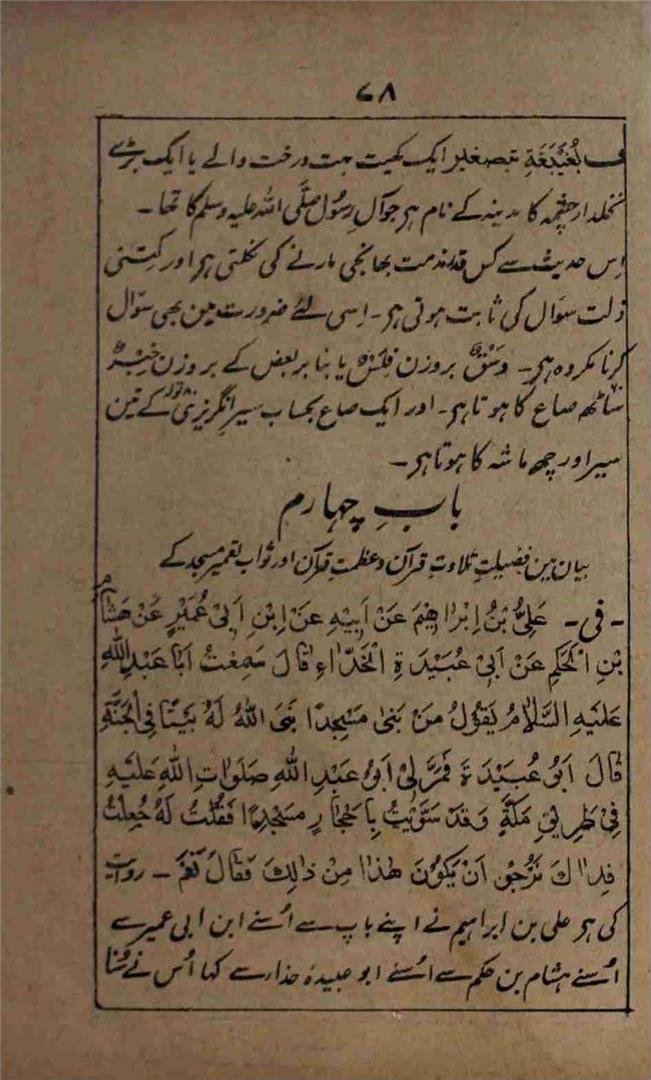 ۶۸
ف بُغَيْبِغَةِ بتصغیر ایک کھیت بہت درخت والے یا ایک بڑے
نخلدار چشمہ کا مدینہ کے نام ہر جو آل رسول صلّی اللہ علیہ وسلم کا تھا ۔
اس حدیث سے کس قدر مذمت بھانجی مارنے کی نکلتی ہر اور کتنی
ذلت سوال کی ثابت ہوتی ہر ۔ اسی لئے ضرورت مین بھی سوال
کرنا مکروہ ہر ۔ وَسْق بروزن فلس یا بنا بر بعض کے بروزن حبر
ساٹھ صاع کا ہوتا ہر ۔ اور ایک صاع بحساب سیر انگریزی کے تین
سیر اور چھ ماشہ کا ہوتا ہر ۔
بابِ چہارم
بیان مین فضیلت تلاوت قرآن و عظمتِ قرآن اور ثواب تعمیر مسجد کے
۔ فی ۔ عَلِيُّ بْنُ اِبْرَاهِيْمَ عَنْ اَبِيْهِ عَنْ اِبْنِ اَبِيْ عُمَيْرٍ عَنْ هِشَامِ
بْنِ الْحَكَمِ عَنْ اَبِيْ عُبَيْدَةِ الْحَذَّاءِ قَالَ سَمِعْتُ اَبَا عَبْدِ اللهِ
عَلَيْهِ السَّلَامُ يَقُوْلُ مَنْ بَنٰى مَسْجِدًا بَنَى اللهُ لَهُ بَيْتًا فِي الْجَنَّةِ
قَالَ اَبُوْ عُبَيْدَةَ فَمَرَّ بِيْ اَبُوْ عَبْدِ اللهِ صَلَوَاتُ اللهِ عَلَيْهِ
فِيْ طَرِيْقِ مَكَّةَ وَقَدْ سَوَّيْتُ بِاَحْجَارٍ مَسْجِدًا فَقُلْتُ لَهُ جُعِلْتُ
فِدَاكَ نَرْجُوْ اَنْ يَكُوْنَ هٰذَا مِنْ ذٰلِكَ فَقَالَ نَعَمْ ۔ روایت
کی ہر علی بن ابراہیم نے اپنے باپ سے اُسنے ابن ابی عمیر سے
اُسنے ہشام بن حکم سے اُسنے ابو عبیدۂ حذار سے کہا اُس نے سُنا